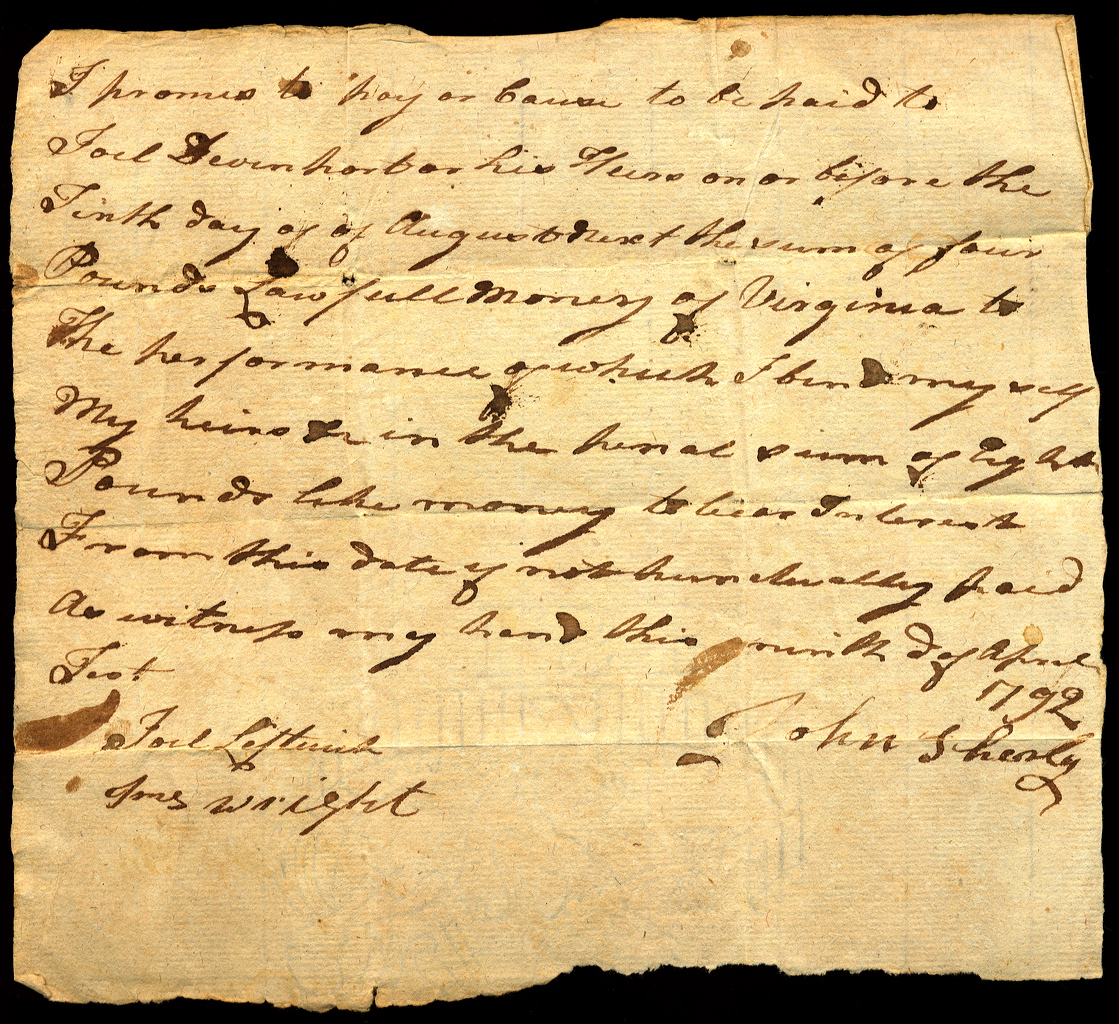 I promis to pay or Cause to be paid to
Joel Devenport or his Heirs on or before the
Tinth day of of August next the sum of four
Pounds Lawfull Money of Virginia to
The performance of which I bind my self
My heirs &c in the penal sum of Eight
Pounds like money to bear Interest
From this date if not punctually paid
As witness my hand this ninth d of April
1792
Test
John Sherly
Joel Leftwich
Jms wright